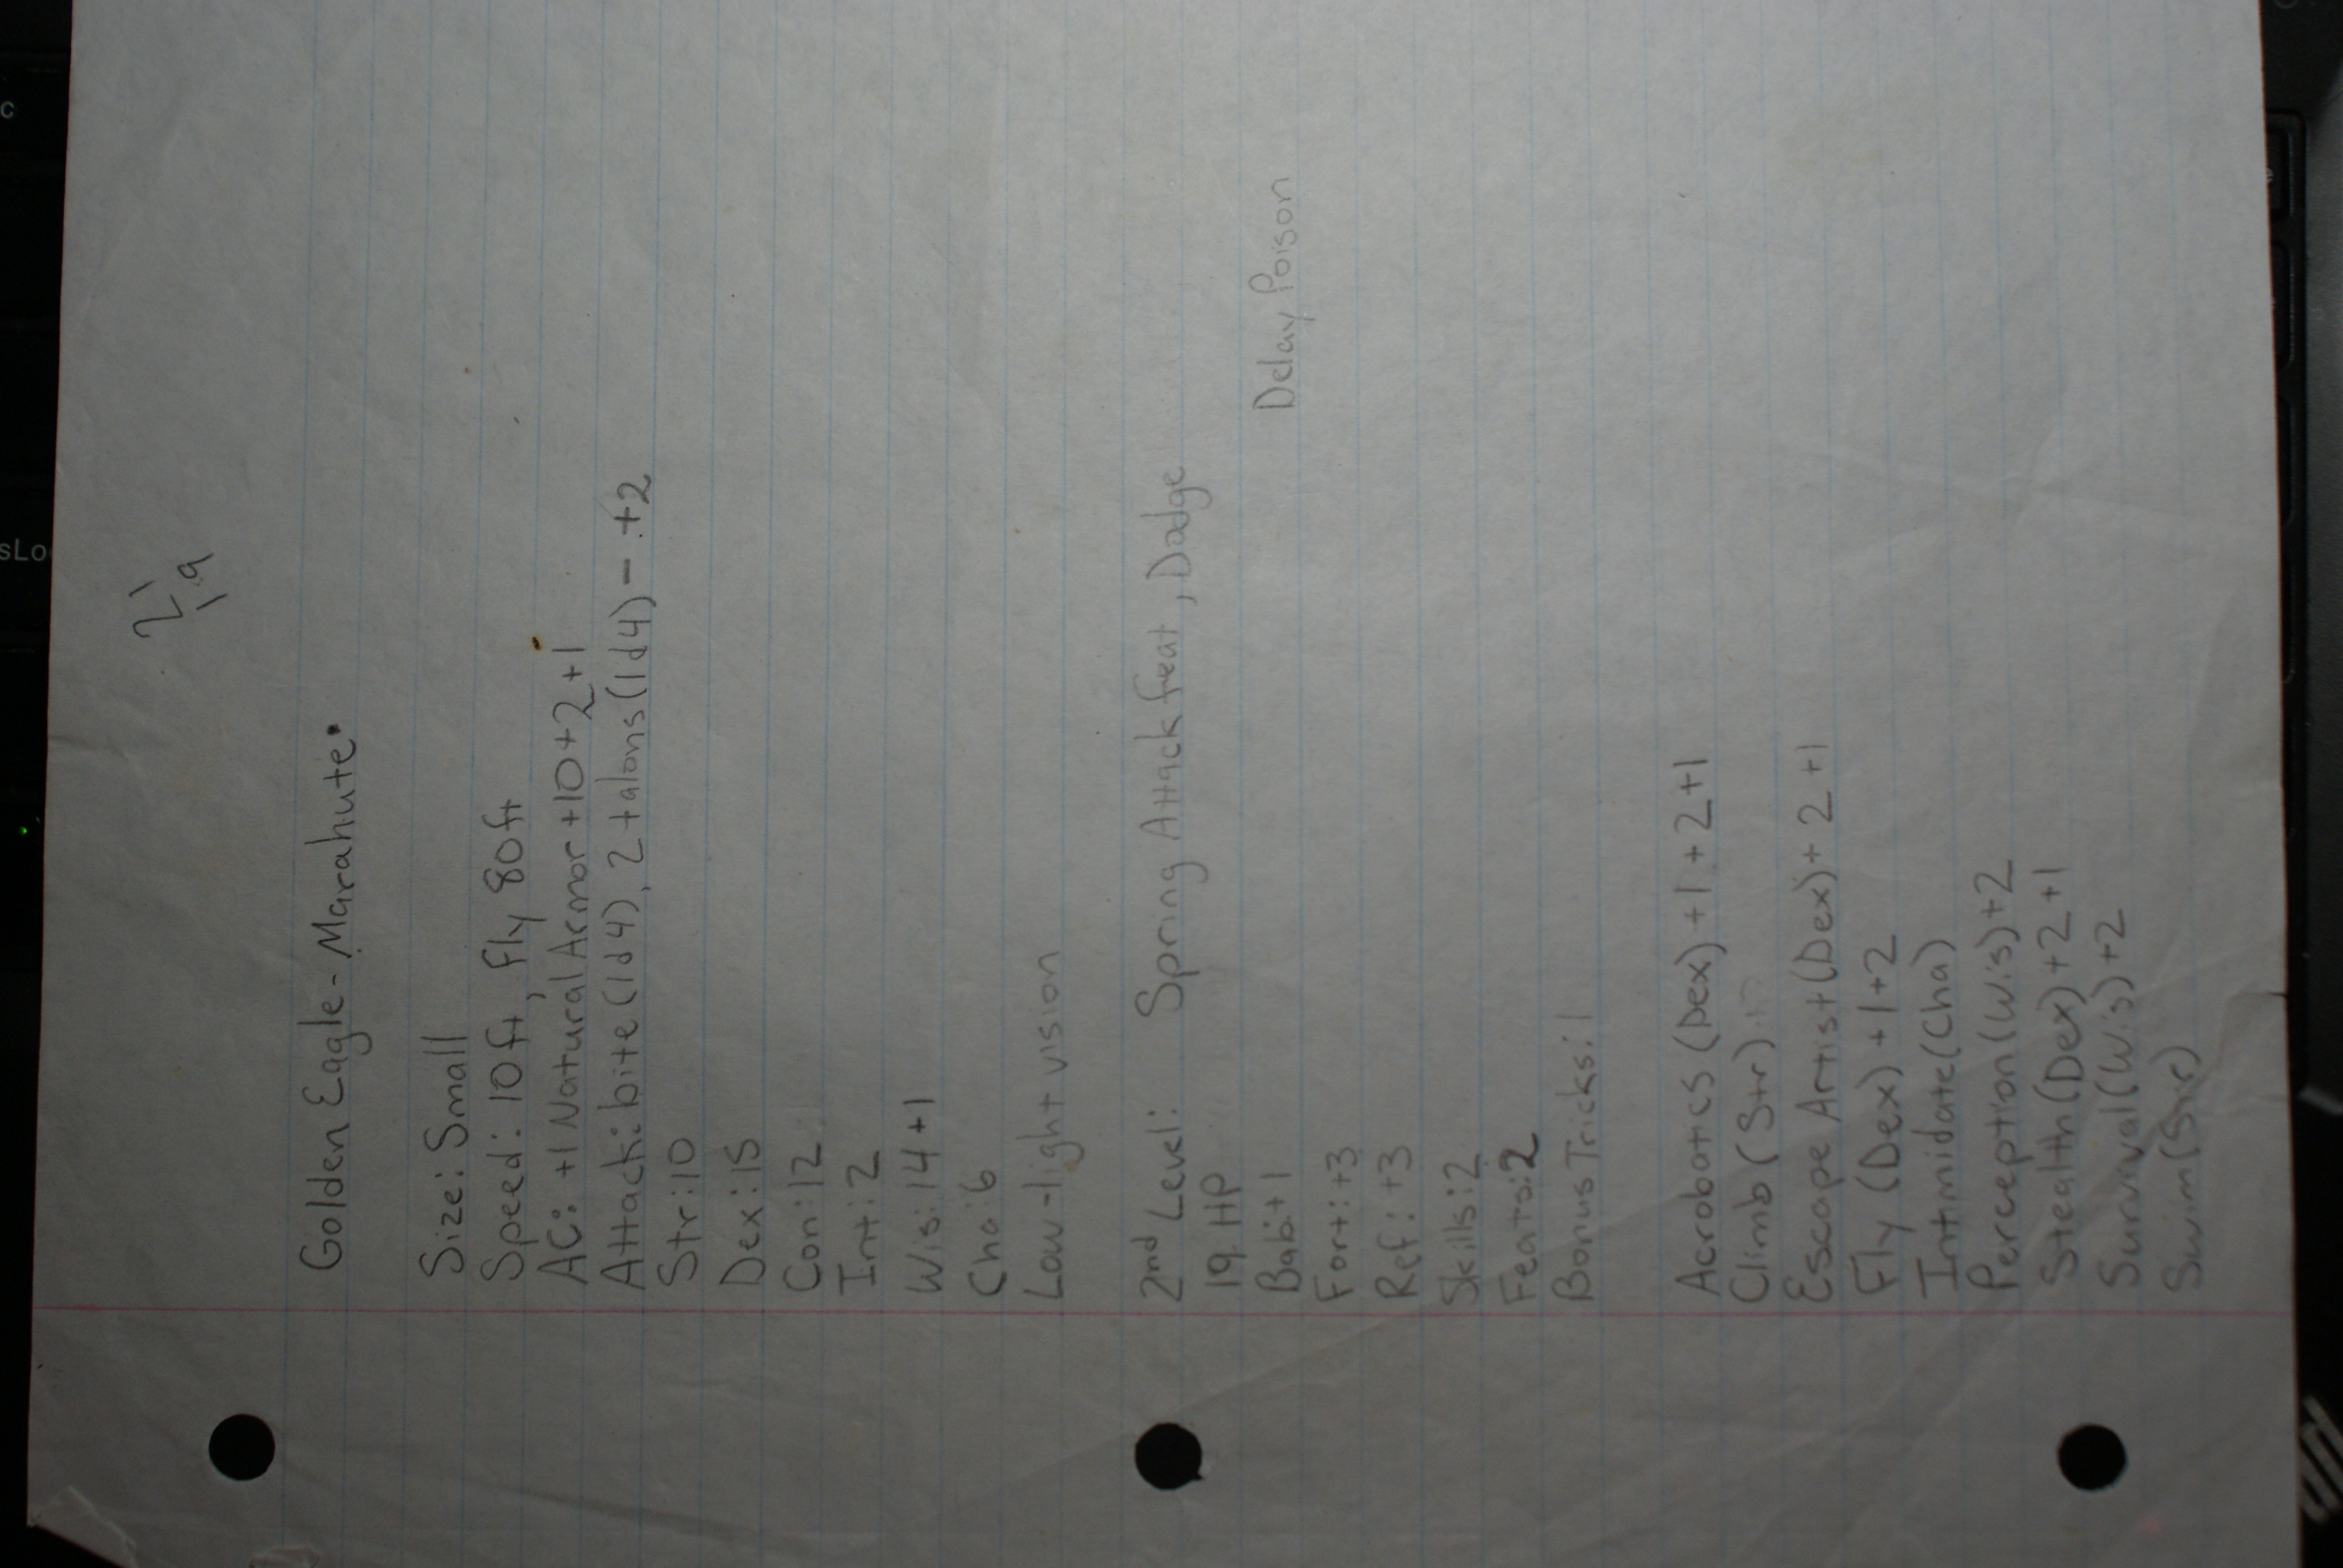 Golden Eagle - Marahute
Size: Small
Speed: 10ft, fly 80ft
AC: +1 Natural Armor +10+2+1
Attack: bite (1d4), 2 talons (1d4) - +2
Str: 10
Dex: 15
Con: 12
Int: 2
Wis: 14 +1
Cha: 6
Low-light vision
2nd Level: Spring Attack feat, Dodge
19 HP
Bab: +1 Delay Poison
Fort: +3
Ref: +3
Skills: 2
Feats: 2
Bonus Tricks: 1
Acrobatics (Dex) +1 +2+1
Climb (Str)
Escape Artist (Dex) + 2 +1
Fly (Dex) +1+2
Intimidate (Cha)
Perception (Wis) +2
Stealth (Dex) +2 +1
Survival (Wis) +2
Swim (Str)